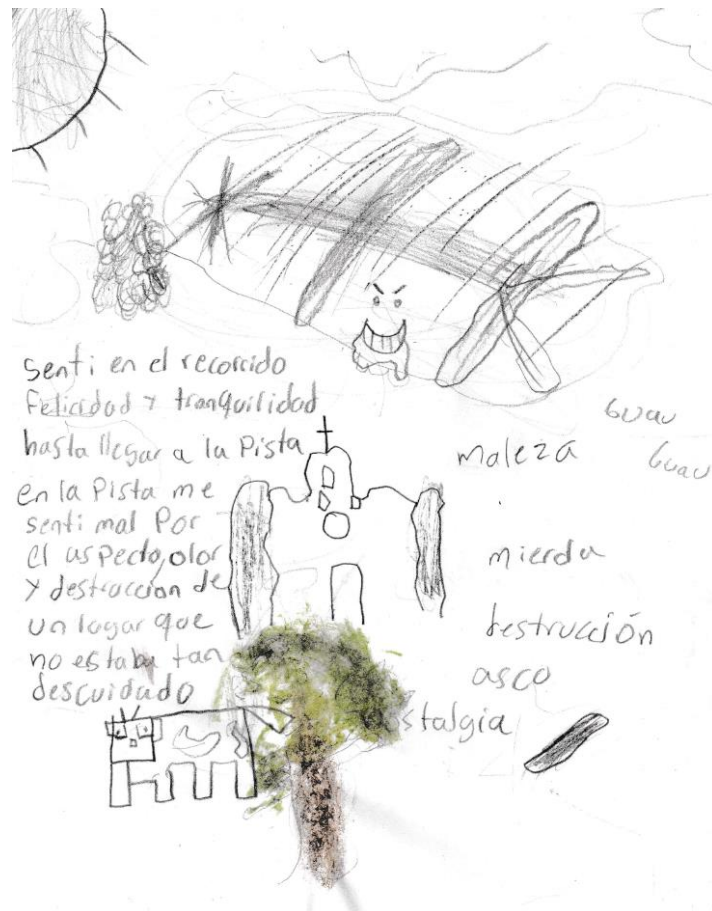 Senti en el recorrido
Felicidad y tranquilidad
hasta llegar a la Pista
en la Pista me
senti mal Por
el aspecto, olor
y destruccion de
un lugar que
no estaba tan
descuidado
Guau
Guau
maleza
mierda
destrucción
asco
stalgia